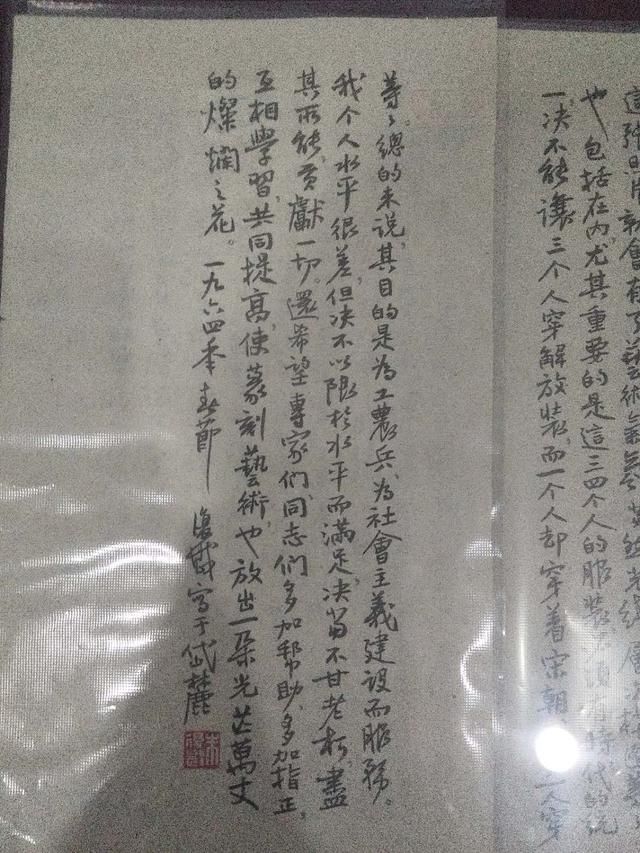 就會有了藝術氣氛
也包括在內，尤其重要的是這三四个人的服裝必須有時代的統
一，决不能讓三个人穿解放裝，而一个人却穿着宋朝 人穿
等々。總的来说，其目的是为工農兵、为社會主義建設而服務。
我个人水平很差，但决不以限於水平而滿足，决當不甘老朽，盡
其所能，貢獻一切。還希望專家们、同志们多加帮助，多加指正，
互相學習，共同提高，使篆刻藝術，也放出一朵光芒萬丈
的燦爛之花。一九六四年春節
復戡寫于岱麓